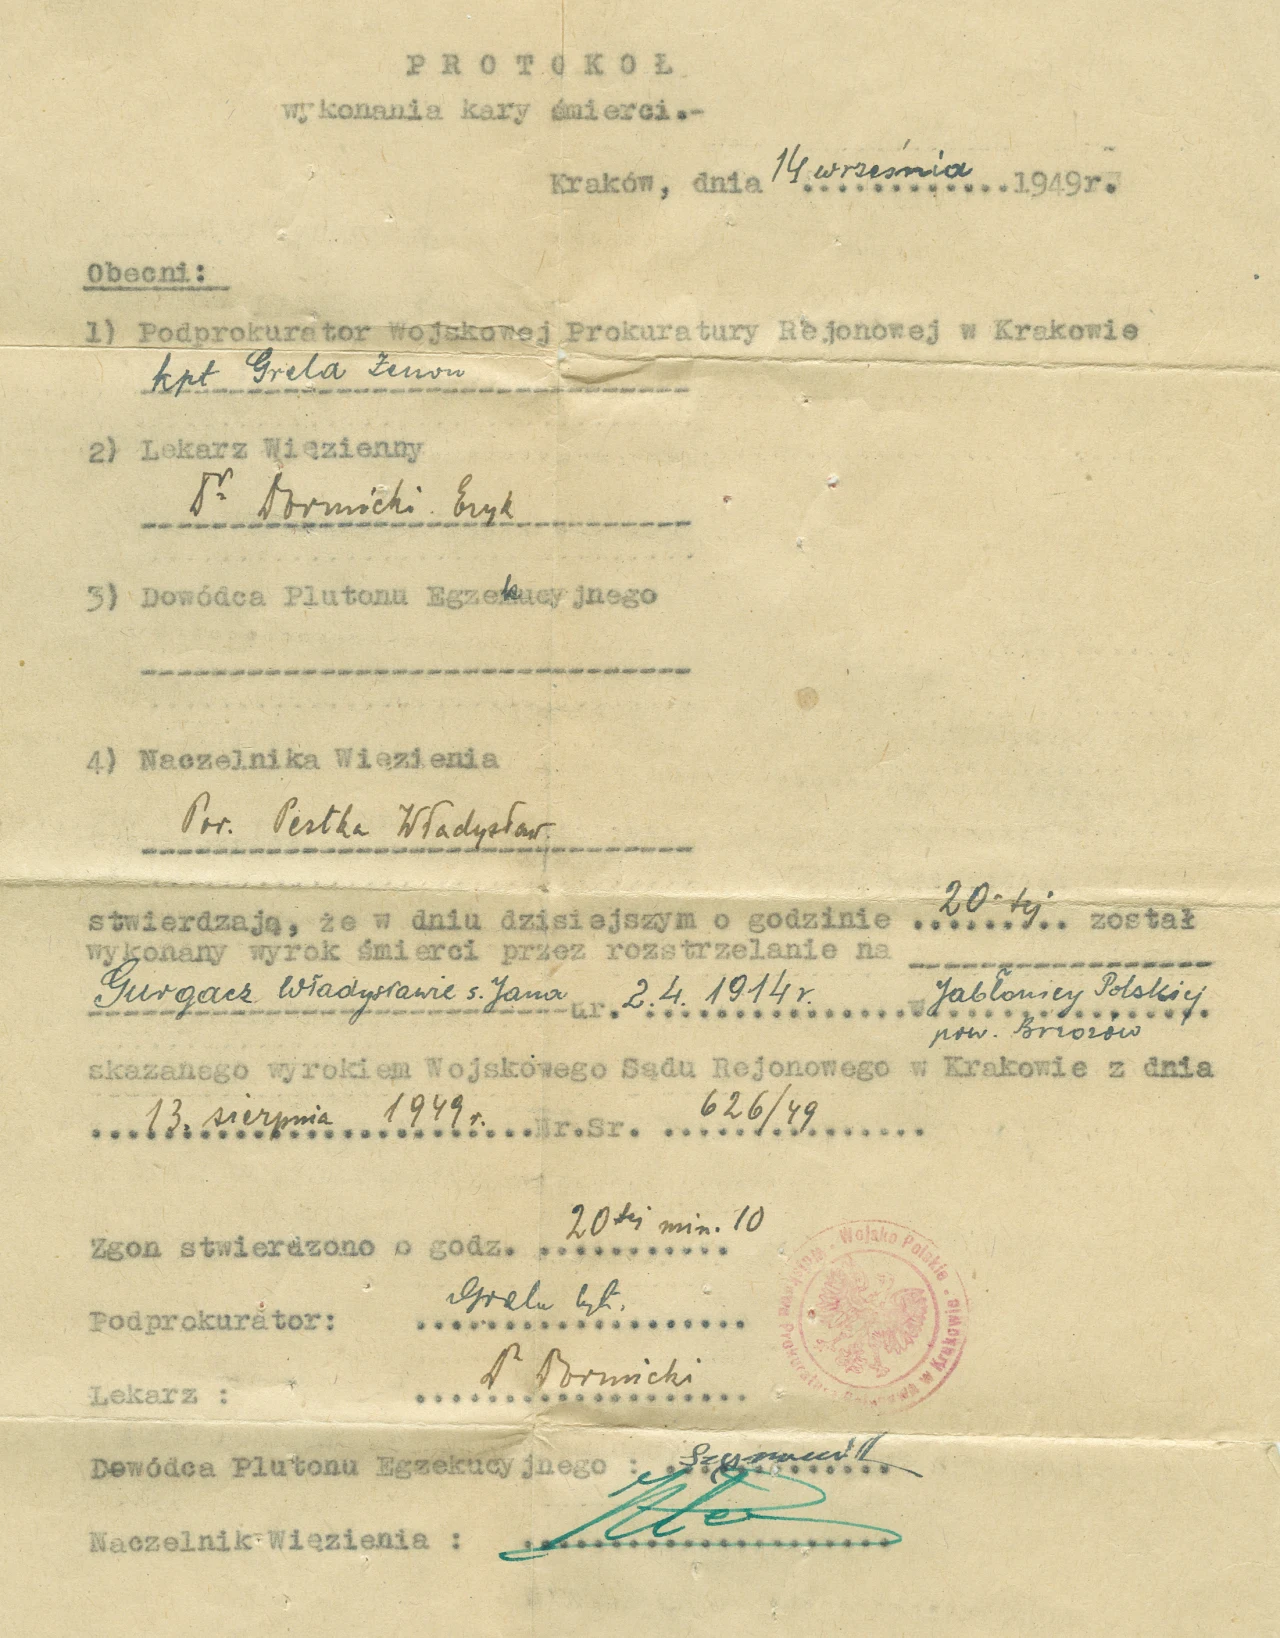 PROTOKOŁ
wykonania kary śmierci.-
Kraków, dnia 14 września 1949r.
Obecni:
1) Podprokurator Wojskowej Prokuratury Rejonowej w Krakowie
kpt Grela Zenon
2) Lekarz Więzienny
Dr Dormicki Eryk
3) Dowódca Plutonu Egzekucyjnego
4) Naczelnika Więzienia
Por. Pestka Władysław
stwierdzają, że w dniu dzisiejszym o godzinie 20-tej został
wykonany wyrok śmierci przez rozstrzelanie na
Gurgacz Władysławie s. Jana ur. 2.4.1914 r. w Jabłonicy Polskiej
pow. Brzozów
skazanego wyrokiem Wojskowego Sądu Rejonowego w Krakowie z dnia
13. sierpnia 1949 r. Nr.Sr. 626/49
Zgon stwierdzono o godz. 20tej min. 10
Wojsko Polskie Wojskowa Prokuratura Rejonowa w Krakowie
Podprokurator: Grela kpt.
Lekarz : Dr Dormicki
Dowódca Plutonu Egzekucyjnego :
Naczelnik Więzienia :